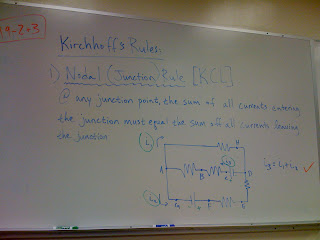 19-2+3
Kirchhoff's Rules:
1) Nodal (Junction) Rule [KCL]
@ any junction point, the sum of all currents entering
the junction must equal the sum off all currents leaving
the junction.
i₁
H
A
B
C
D
i₃ = i₁ + i₂
i₂
G
F
E